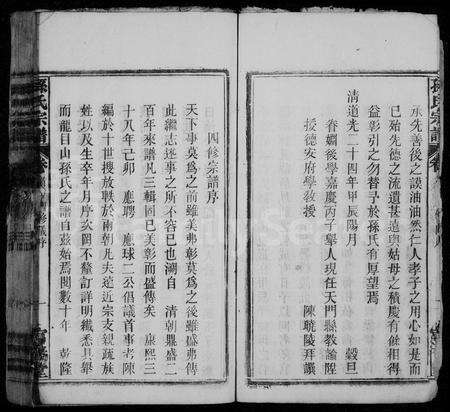 承先善後之謨油油然仁人孝子之用心如是而
已殆先德之流遺甚遠與姑母之積慶有餘相得
益彰引之勿替予於孫氏有厚望焉
清道光二十四年甲辰陽月 穀旦
眷姻後學嘉慶丙子舉人現任天門縣教諭陞
授德安府學教授 陳 拜譔
孫氏宗譜
四修宗譜序
天下事莫為之前雖美弗彰莫為之後雖盛弗傳
此繼志述事之所不容已也溯自 清朝鼎盛二
百年來譜凡三輯固已美彰而盛傳矣 康熙三
十八年己卯 應聘 應球二公倡議首事考陳
編於十世搜放軼於兩朝凡夫遠近宗支親疏族
姓以及生卒年月序次罔不釐訂詳明纖悉具舉
而龍目山孫氏之譜自茲始焉閱數十年 乾隆
孫氏宗譜